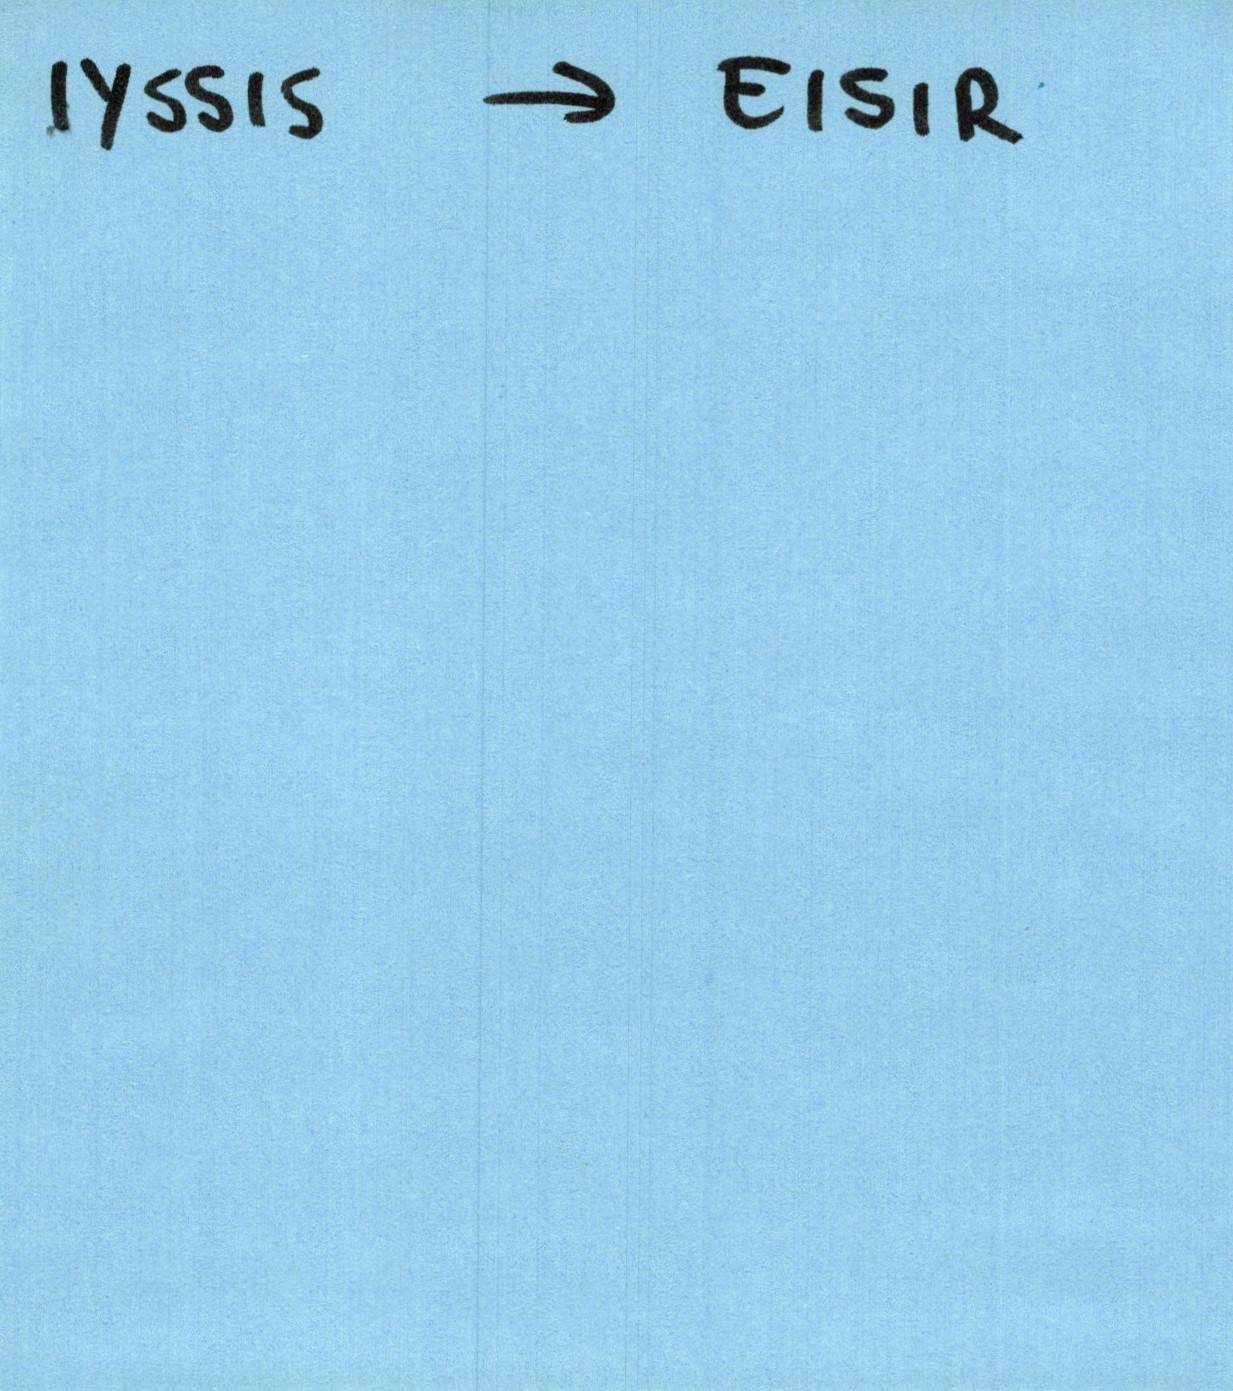 IYSSIS → EISIR